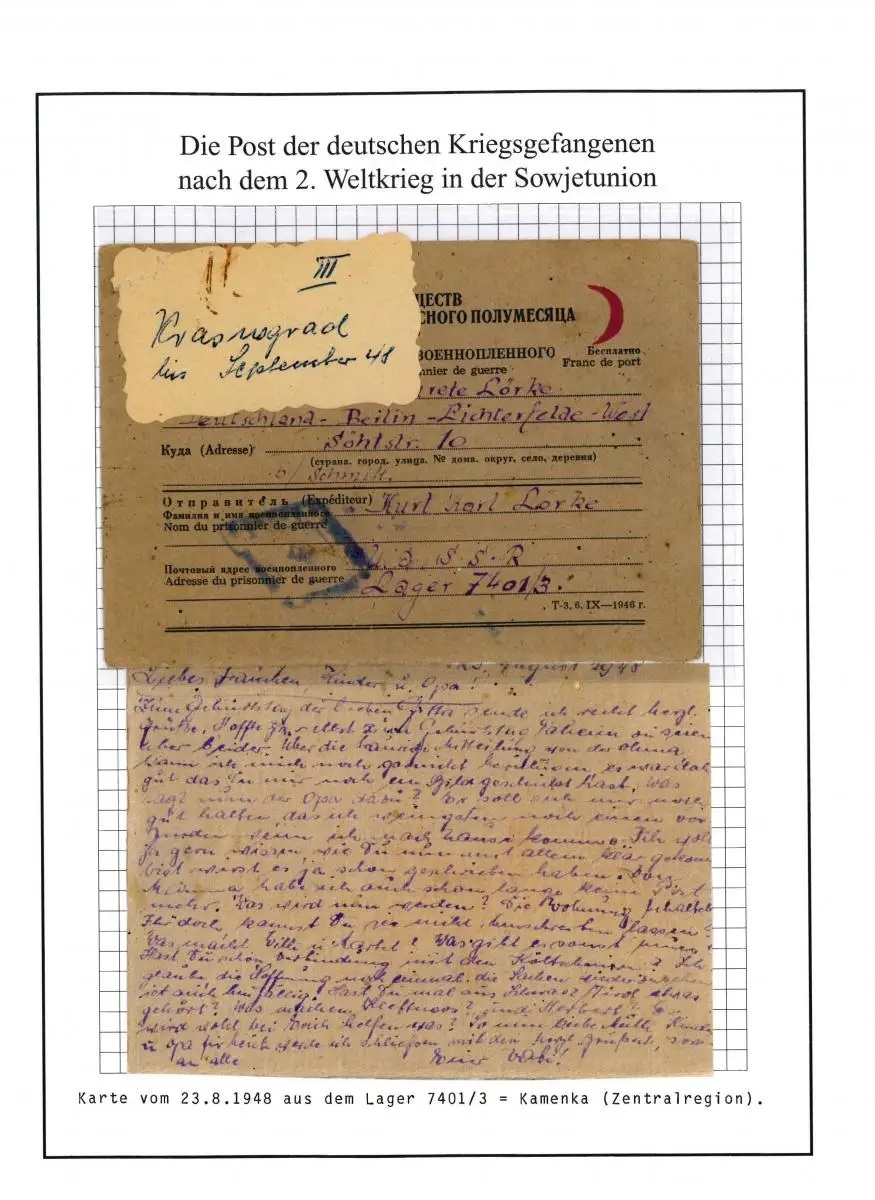 Die Post der deutschen Kriegsgefangenen
nach dem 2. Weltkrieg in der Sowjetunion
III
Krasnograd
bis September 48
ЩЕСТВ
СНОГО ПОЛУМЕСЯЦА
ВОЕННОПЛЕННОГО
Бесплатно
nnier de guerre
Franc de port
rete Lörke
Deutschland - Berlin - Lichterfelde - West
Куда (Adresse) Söhtstr. 10
(страна, город, улица, № дома, округ, село, деревня)
b/ Schmidt.
Отправитель (Expéditeur) Kurt Karl Lörke
Фамилия и имя военнопленного
Nom du prisonnier de guerre
U. d. S. S. R
Почтовый адрес военнопленного
Adresse du prisonnier de guerre Lager 7401/3.
Т-3, 6. IX—1946 г.
23. August 1948
Liebes Frauchen, Kinder u. Opa!
Zum Geburtstag der lieben sende ich recht herzl.
Grüße. Hoffte ja selbst zum Geburtstag daheim zu sein
aber leider. Über die traurige Mitteilung von der Oma
kann ich mich noch gar nicht es war doch
gut das Du mir noch ein Bild geschickt hast. Was
sagt nun der Opa dazu? Er soll sich nur noch
gut halten, das ich wenigsten noch einen vor
wenn ich nach hause komme. Ich
ja gern wissen, wie Du nun mit allem klar
bist wirst es ja schon geschrieben haben. Von
Mamma habe ich auch schon lange keine Post
mehr. Was wird nun werden? Die Wohnung behaltet
Ihr doch, kannst Du sie nicht umschreiben lassen?
Was macht Willi u. Was gibt es sonst neues?
Hast Du schon Verbindung mit den Ich
glaube die Hoffnung noch einmal die Sachen wiederzusehen
ist auch hinfällig. Hast Du mal aus Tirol etwas
gehört? Was machen und Herbert? Er
wird wohl bei Erich helfen was? So nun liebe Mutti, Kinder
u. Opa für heute werde ich schließen mit den herzl. Grüßen,
an alle Euer Vati!
Karte vom 23.8.1948 aus dem Lager 7401/3 = Kamenka (Zentralregion).